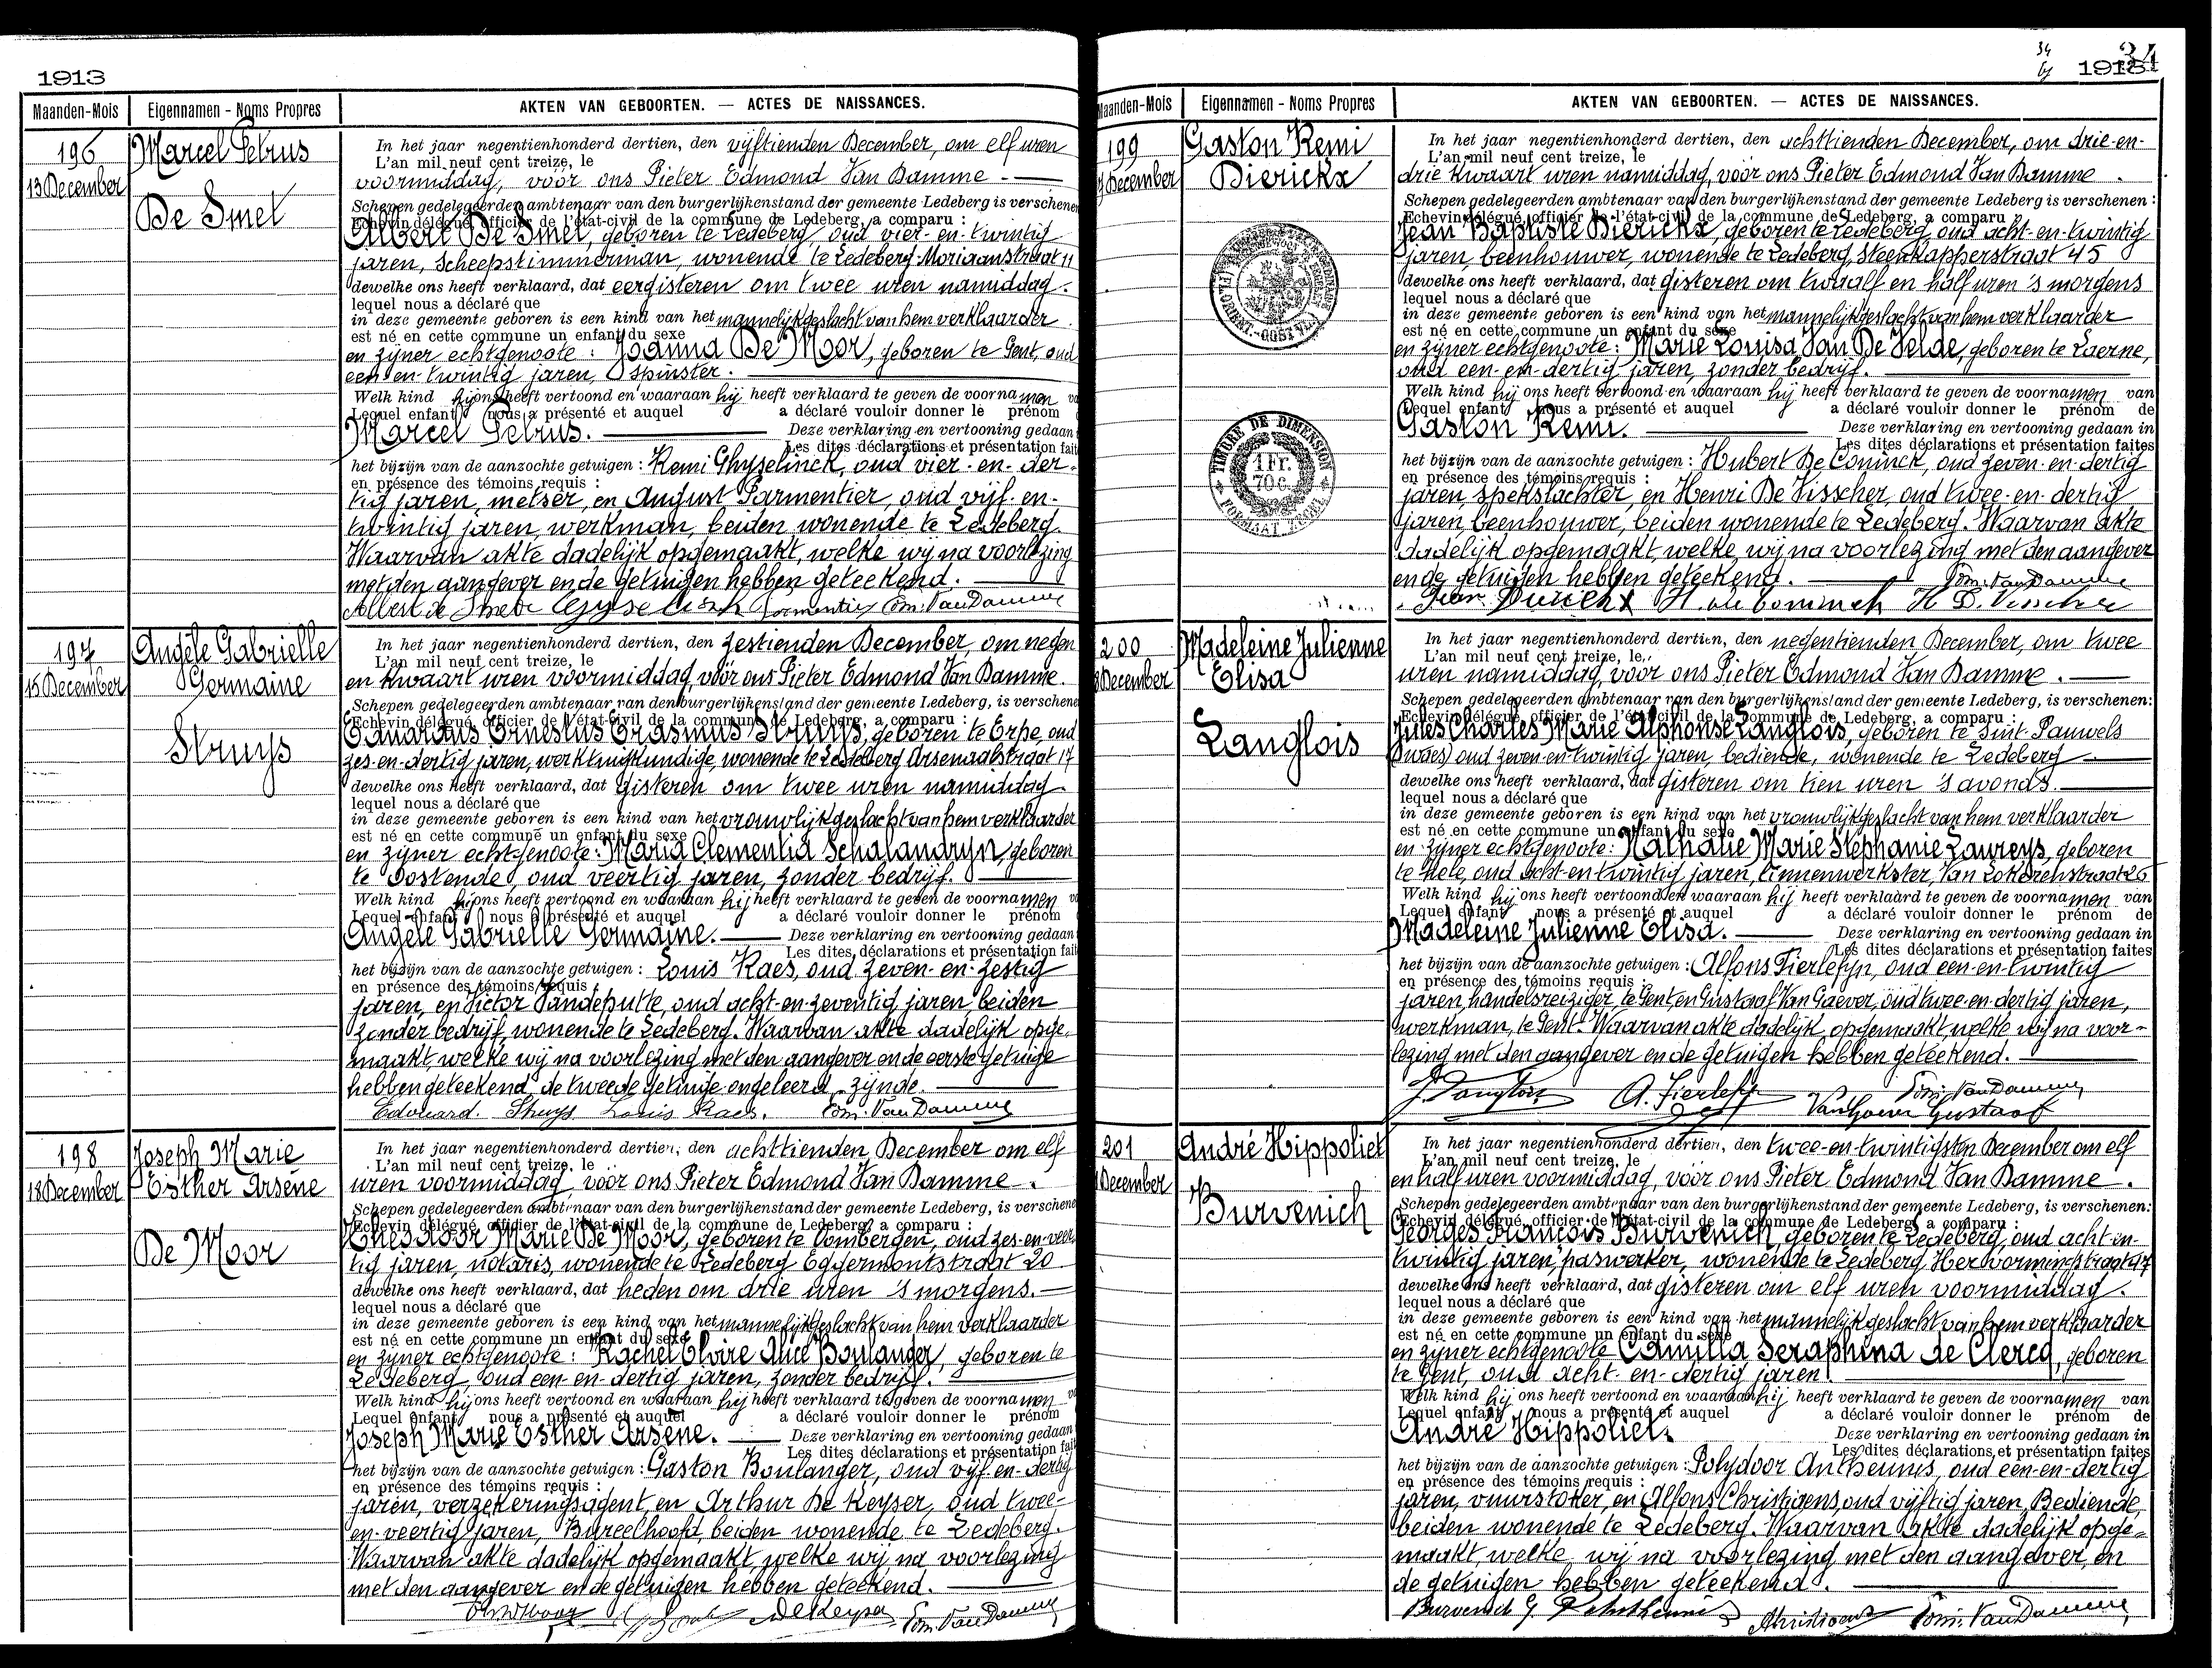 1913
Maanden-Mois Eigennamen - Noms Propres AKTEN VAN GEBOORTEN. — ACTES DE NAISSANCES.
196
13 December
Marcel Petrus
De Smet
In het jaar negentienhonderd dertien, den vijftienden December, om elf uren
L'an mil neuf cent treize, le
voormiddag, vóór ons Pieter Edmond Van Damme . —
Schepen gedelegeerden ambtenaar van den burgerlijkenstand der gemeente Ledeberg is verschenen
Echevin délégué, officier de l'état-civil de la commune de Ledeberg, a comparu :
Albert De Smet, geboren te Ledeberg oud vier-en-twintig
jaren, Scheepstimmerman, wonende te Ledeberg Moriaanstraat 11
dewelke ons heeft verklaard, dat eergisteren om twee uren namiddag.
lequel nous a déclaré que
in deze gemeente geboren is een kind van het mannelijk geslacht van hem verklaarder
est né en cette commune un enfant du sexe
en zijner echtgenoote : Joanna De Moor, geboren te Gent, oud
een-en-twintig jaren, Spinster. —
Welk kind hij ons heeft vertoond en waaraan hij heeft verklaard te geven de voornamen va
Lequel enfant nous a présenté et auquel a déclaré vouloir donner le prénom
Marcel Petrus. — Deze verklaring en vertooning gedaan
Les dites déclarations et présentation fait
het bijzijn van de aanzochte getuigen : Remi Ghyselinck, oud vier-en-der-
en présence des témoins requis :
tig jaren, metser, en August Parmentier, oud vijf-en-
twintig jaren, werkman, beiden wonende te Ledeberg.
Waarvan akte dadelijk opgemaakt, welke wij na voorlezing
met den aangever en de getuigen hebben geteekend. —
Albert de Smet Parmentier Edm. Van Damme
197
15 December
Angèle Gabrielle
Germaine
Struys
In het jaar negentienhonderd dertien, den zestienden December, om negen
L'an mil neuf cent treize, le
en kwaart uren voormiddag, vóór ons Pieter Edmond Van Damme.
Schepen gedelegeerden ambtenaar van den burgerlijkenstand der gemeente Ledeberg, is verschene
Echevin délégué, officier de l'état-civil de la commune de Ledeberg, a comparu :
Eduardus Ernestus Erasmus Struys, geboren te Erpe, oud
zes-en-dertig jaren, werktuigkundige, wonende te Ledeberg Arsenaalstraat 17
dewelke ons heeft verklaard, dat gisteren om twee uren namiddag.
lequel nous a déclaré que
in deze gemeente geboren is een kind van het vrouwlijk geslacht van hem verklaarder
est né en cette commune un enfant du sexe
en zijner echtgenoote : Maria Clementia Schalandryn, geboren
te Oostende, oud veertig jaren, zonder bedrijf. —
Welk kind hij ons heeft vertoond en waaraan hij heeft verklaard te geven de voornamen v
Lequel enfant nous a présenté et auquel a déclaré vouloir donner le prénom
Angèle Gabrielle Germaine. — Deze verklaring en vertooning gedaan
Les dites déclarations et présentation fait
het bijzijn van de aanzochte getuigen : Louis Raes, oud zeven-en-zestig
en présence des témoins requis :
jaren, en Victor Vandeputte, oud acht-en-zeventig jaren, beiden
zonder bedrijf, wonende te Ledeberg. Waarvan akte dadelijk opge-
maakt, welke wij na voorlezing met den aangever en de eerste getuige
hebben geteekend, de tweede getuige ongeleerd zijnde. —
Edouard. Struys Louis Raes. Edm. Van Damme
198
18 December
Joseph Marie
Esther Arsène
De Moor
In het jaar negentienhonderd dertien, den achttienden December om elf
L'an mil neuf cent treize, le
uren voormiddag, vóór ons Pieter Edmond Van Damme .
Schepen gedelegeerden ambtenaar van den burgerlijkenstand der gemeente Ledeberg, is verschene
Echevin délégué, officier de l'état-civil de la commune de Ledeberg, a comparu :
Theodoor Marie De Moor, geboren te Lombergen, oud zes-en-veer
tig jaren, notaris, wonende te Ledeberg Eggermontstraat 20
dewelke ons heeft verklaard, dat heden om drie uren 's morgens. —
lequel nous a déclaré que
in deze gemeente geboren is een kind van het mannelijk geslacht van hem verklaarder
est né en cette commune un enfant du sexe
en zijner echtgenoote : Rachel Elvire Alice Boulanger, geboren te
Ledeberg, oud een-en-dertig jaren, zonder bedrijf. —
Welk kind hij ons heeft vertoond en waaraan hij heeft verklaard te geven de voornamen v
Lequel enfant nous a présenté et auquel a déclaré vouloir donner le prénom
Joseph Marie Esther Arsène. — Deze verklaring en vertooning gedaan
Les dites déclarations et présentation fait
het bijzijn van de aanzochte getuigen : Gaston Boulanger, oud vijf-en-dertig
en présence des témoins requis :
jaren, verzekeringsagent, en Arthur De Keyser, oud twee-
en-veertig jaren, Bureelhoofd, beiden wonende te Ledeberg.
Waarvan akte dadelijk opgemaakt, welke wij na voorlezing
met den aangever en de getuigen hebben geteekend. —
DeKeyser Edm. Van Damme
34
1913
Maanden-Mois Eigennamen - Noms Propres AKTEN VAN GEBOORTEN. — ACTES DE NAISSANCES.
199
December
Gaston Remi
Dierickx
TIMBRE DE DIMENSION
1 Fr.
70 c.
FORMAAT ZEGEL
In het jaar negentienhonderd dertien, den achttienden December, om drie-en-
L'an mil neuf cent treize, le
drie kwaart uren namiddag, vóór ons Pieter Edmond Van Damme .
Schepen gedelegeerden ambtenaar van den burgerlijkenstand der gemeente Ledeberg is verschenen :
Echevin délégué, officier de l'état-civil de la commune de Ledeberg, a comparu :
Jean Baptiste Dierickx, geboren te Ledeberg, oud acht-en-twintig
jaren, beenhouwer, wonende te Ledeberg, Steenkapperstraat 45
dewelke ons heeft verklaard, dat gisteren om twaalf en half uren 's morgens
lequel nous a déclaré que
in deze gemeente geboren is een kind van het mannelijk geslacht van hem verklaarder
est né en cette commune un enfant du sexe
en zijner echtgenoote : Marie Louisa Van De Velde, geboren te Laerne,
oud een-en-dertig jaren, zonder bedrijf. —
Welk kind hij ons heeft vertoond en waaraan hij heeft verklaard te geven de voornamen van
Lequel enfant nous a présenté et auquel a déclaré vouloir donner le prénom de
Gaston Remi. — Deze verklaring en vertooning gedaan in
Les dites déclarations et présentation faites
het bijzijn van de aanzochte getuigen : Hubert De Coninck, oud zeven-en-dertig
en présence des témoins requis :
jaren, spekslachter, en Henri De Visscher, oud twee-en-dertig
jaren, beenhouwer, beiden wonende te Ledeberg. Waarvan akte
dadelijk opgemaakt, welke wij na voorlezing met den aangever
en de getuigen hebben geteekend. — Edm. Van Damme
Jean Dierickx H. de Coninck H D. Visscher
200
December
Madeleine Julienne
Elisa
Langlois
In het jaar negentienhonderd dertien, den negentienden December, om twee
L'an mil neuf cent treize, le
uren namiddag, vóór ons Pieter Edmond Van Damme . —
Schepen gedelegeerden ambtenaar van den burgerlijkenstand der gemeente Ledeberg, is verschenen:
Echevin délégué, officier de l'état-civil de la commune de Ledeberg, a comparu :
Jules Charles Marie Alphonse Langlois, geboren te Sint-Pauwels
(Waes) oud zeven-en-twintig jaren, bediende, wonende te Ledeberg —
dewelke ons heeft verklaard, dat gisteren om tien uren 's avonds. —
lequel nous a déclaré que
in deze gemeente geboren is een kind van het vrouwlijk geslacht van hem verklaarder
est né en cette commune un enfant du sexe
en zijner echtgenoote : Nathalie Marie Stephanie Laureys, geboren
te Hele, oud acht-en-twintig jaren, linnenwerkster, Van Lokerenstraat 26
Welk kind hij ons heeft vertoond en waaraan hij heeft verklaard te geven de voornamen van
Lequel enfant nous a présenté et auquel a déclaré vouloir donner le prénom de
Madeleine Julienne Elisa. — Deze verklaring en vertooning gedaan in
Les dites déclarations et présentation faites
het bijzijn van de aanzochte getuigen : Alfons Fierlefyn, oud een-en-twintig
en présence des témoins requis :
jaren, handelsreiziger, te Gent, en Gustaaf Van Gaever, oud twee-en-dertig jaren,
werkman, te Gent. Waarvan akte dadelijk opgemaakt, welke wij na voor-
lezing met den aangever en de getuigen hebben geteekend. —
J. Langlois A. Fierlefyn Edm. Van Damme
Gustaaf
201
December
André Hippoliet
Burvenich
In het jaar negentienhonderd dertien, den twee-en-twintigsten December om elf
L'an mil neuf cent treize, le
en half uren voormiddag, vóór ons Pieter Edmond Van Damme .
Schepen gedelegeerden ambtenaar van den burgerlijkenstand der gemeente Ledeberg, is verschenen:
Echevin délégué, officier de l'état-civil de la commune de Ledeberg, a comparu :
Georges François Burvenich, geboren te Ledeberg, oud acht-en-
twintig jaren, paswerker, wonende te Ledeberg Hervormingstraat 97
dewelke ons heeft verklaard, dat gisteren om elf uren voormiddag.
lequel nous a déclaré que
in deze gemeente geboren is een kind van het mannelijk geslacht van hem verklaarder
est né en cette commune un enfant du sexe
en zijner echtgenoote Camilla Seraphina de Clercq, geboren
te Gent, oud acht-en-dertig jaren. —
Welk kind hij ons heeft vertoond en waaraan hij heeft verklaard te geven de voornamen van
Lequel enfant nous a présenté et auquel a déclaré vouloir donner le prénom de
André Hippoliet. Deze verklaring en vertooning gedaan in
Les dites déclarations et présentation faites
het bijzijn van de aanzochte getuigen : Polydoor Antheunis, oud een-en-dertig
en présence des témoins requis :
jaren, vuurstoker, en Alfons Christiaens, oud vijftig jaren, Bediende,
beiden wonende te Ledeberg. Waarvan akte dadelijk opge-
maakt, welke wij na voorlezing met den aangever en
de getuigen hebben geteekend. —
Burvenich G P. Antheunis Christiaens Edm. Van Damme